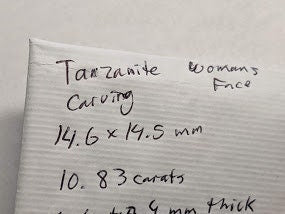 Tanzanite Womans
Face
Carving
14.6 x 14.5 mm
10.83 carats
9 mm thick